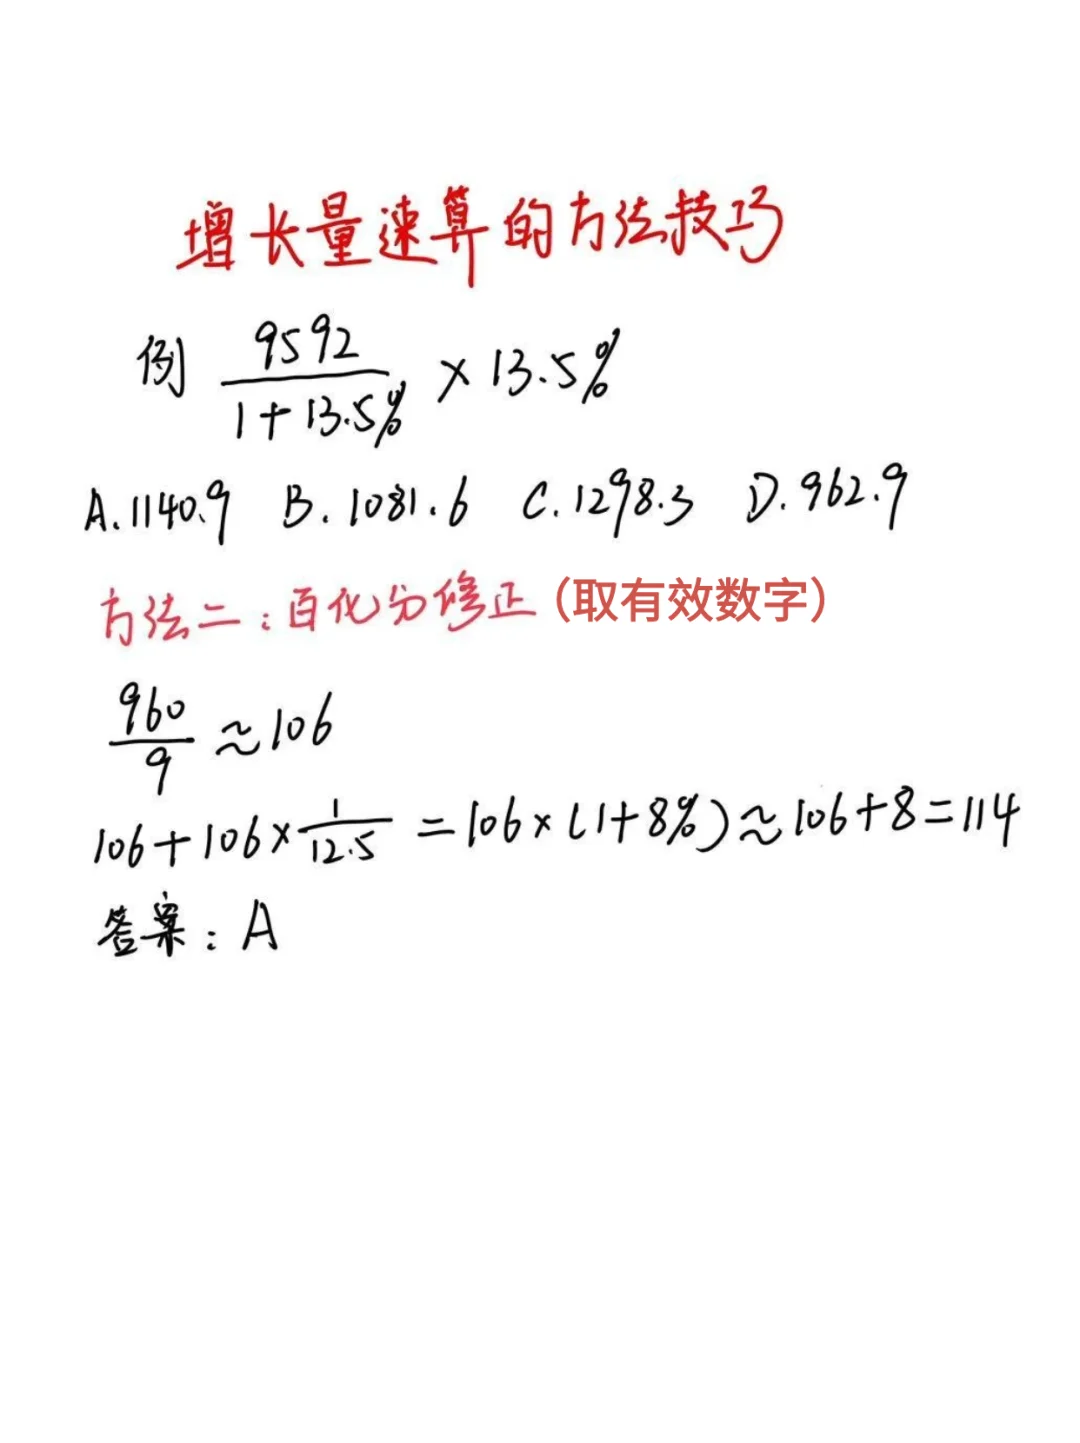 增长量速算的方法技巧
例 9592/(1+13.5%) × 13.5%
A.1140.9 B.1081.6 C.1298.3 D.962.9
方法二：百化分修正（取有效数字）
960/9 ≈106
106+106×1/12.5 =106×(1+8%)≈106+8=114
答案：A